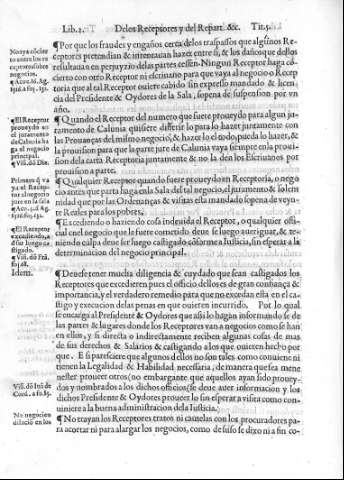 Lib.2. De los Receptores y del Repart. &c. Tit.5.
No aya cōcierto entre los receptores sobre negocios.
¶ Por que los fraudes y engaños cerca de los traspassos que algunos Receptores pretendian & intentauan hazer entre si, & los daños que dellos resultauan en perjuyzio de las partes cessen. Ningun Receptor haga cōcierto con otro Receptor ni escriuano para que vaya al negocio o Receptoria que al tal Receptor ouiere cabido sin expresso mandado & licencia del Presidente & Oydores de la Sala, so pena de suspension por vn año.
¶ El Receptor proueydo an el juramento de Calūnia haga el negocio principal.
¶ Quando el Receptor del numero que fuere proueydo para algun juramento de Calunia quisiere diferir lo para lo hazer juntamente con las Prouanças del mismo negocio, & hazer lo todo, pueda lo hazer, & la prouision para que la parte jure de Calunia vaya siempre en la prouision de la carta Receptoria juntamente & no la den los Escriuanos por prouision a parte.
¶ Qualquier Receptor quando fuere proueydo en Receptoria, o negocio antes que parta haga en la Sala del tal negocio, el juramento & solenidad que por las Ordenanças & visitas esta mandado so pena de veynte Reales para los pobres.
¶ El Receptor
¶ Excediendo, o haziendo cosa indeuida el Receptor, o qualquier oficial en el negocio que le fuere cometido deue se luego aueriguar, & teniendo culpa deue ser luego castigado cōforme a Iusticia, sin esperar a la determinacion del negocio principal.
Idem.
¶ Deuese tener mucha diligencia & cuydado que sean castigados los Receptores que excedieren pues el oficio dellos es de gran confiança & importancia, y el verdadero remedio para que no excedan esta en el castigo y execucion de las penas en que ouieren incurrido. Por lo qual se encarga al Presidente & Oydores que assi lo hagan informando se de las partes & lugares donde los Receptores van a negocios como se han en ellos, y si directa o indirectamente reciben algunas cosas de mas de sus derechos & Salarios & castigando a los que ouieren hecho por que. E si pareciere que algunos dellos no son tales como conuiene ni tienen la Legalidad & Habilidad necessaria, de manera que sea menester proueer otros (no embargante que aquellos ayan sido proueydos y nombrados a los dichos oficios) se deue auer informacion y los dichos Presidente & Oydores proueer lo sin esperar a visita como conuiniere a la buena administracion de la Iusticia.
No negocien
¶ No trayan los Receptores tratos ni cautelas con los procuradores para acortar ni para alargar los negocios, como de suso se dixo ni a fin co-